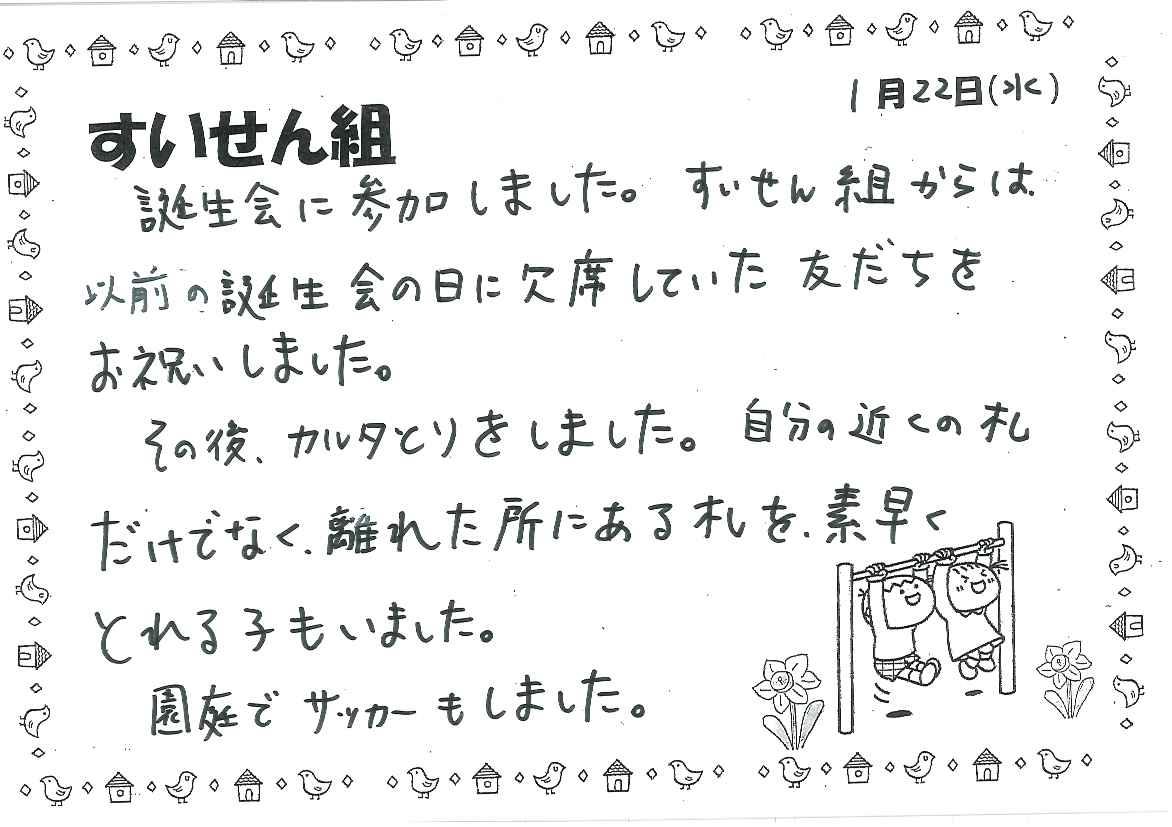 1月22日(水)
すいせん組
誕生会に参加しました。すいせん組からは、
以前の誕生会の日に欠席していた友だちを
お祝いしました。
その後、カルタとりをしました。自分の近くの札
だけでなく、離れた所にある札を、素早く
とれる子もいました。
園庭でサッカーもしました。